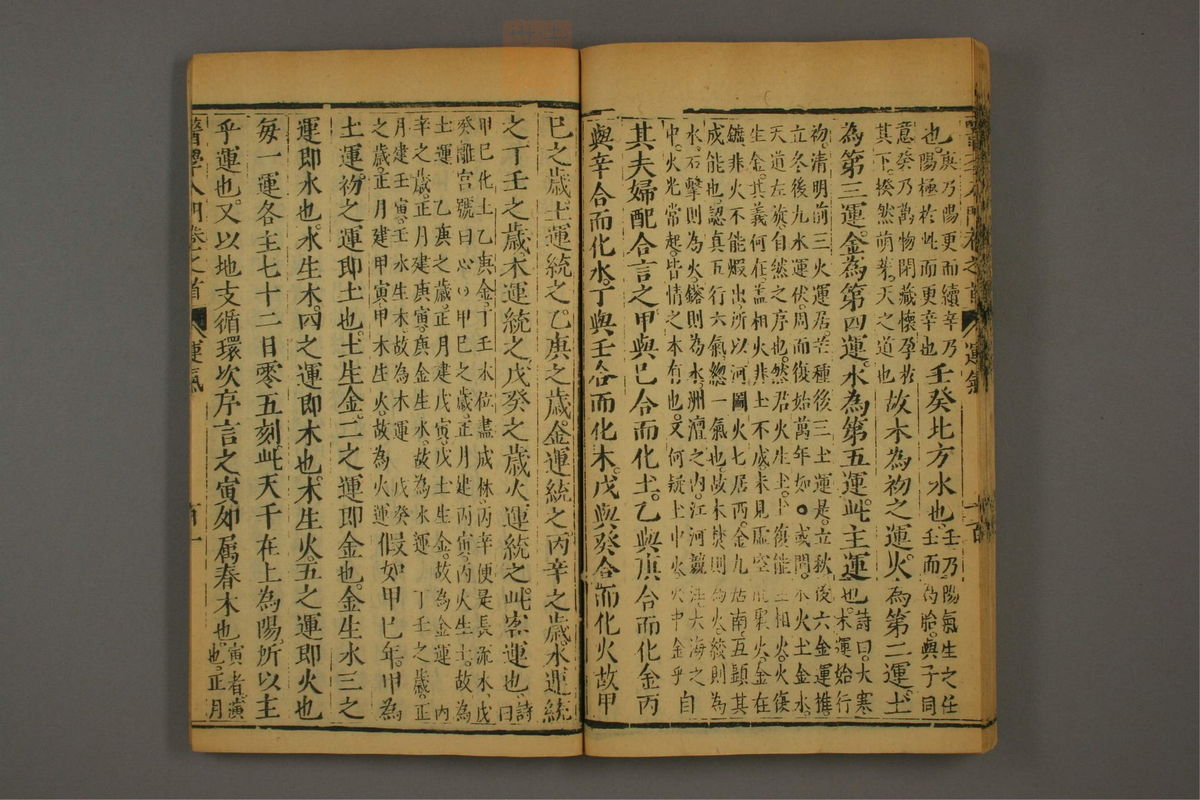 醫學入門卷之首 運氣 一百
也庚乃陽更而續辛乃
也陽極於此而更辛也
壬癸北方水也
壬乃陽氣生之任
壬而為胎與子同
意癸乃萬物閉藏懷孕於
其下揆然萌芽天之道也
故木為初之運火為第二運土
為第三運金為第四運水為第五運此主運也
詩曰大寒
木運始行
初清明前三火運居芒種後三土運是立秋後六金運推
立冬後九水運伏周而復始萬年如○或問木火土金水
天道左旋自然之序也然君火生土土復能生相火火復
生金其義何在蓋相火非土不成未見虛空能聚火金在
鑛非火不能煅出所以河圖火七居西金九居南互顯其
成能也認真五行六氣總一氣也故木焚則為火絞則為
水石擊則為火鎔則為水洲澶之內江河競注大海之
中火光常起皆情之本有也又何疑土中火火中金乎 自
其夫婦配合言之甲與己合而化土乙與庚合而化金丙
與辛合而化水丁與壬合而化木戊與癸合而化火故甲
己之歲土運統之乙庚之歲金運統之丙辛之歲水運統
之丁壬之歲木運統之戊癸之歲火運統之此客運也詩曰
甲己化土乙庚金丁壬木位盡成林丙辛便是長流水戊
癸離宮號曰心○甲己之歲正月建丙寅丙火生土故為
土運 乙庚之歲正月建戊寅戊土生金故為金運 丙
辛之歲正月建庚寅庚金生水故為水運 丁壬之歲正
月建壬寅壬水生木故為木運 戊癸
之歲正月建甲寅甲木生火故為火運
假如甲己年甲為
土運初之運即土也土生金二之運即金也金生水三之
運即水也水生木四之運即木也木生火五之運即火也
每一運各主七十二日零五刻此天干在上為陽所以主
乎運也又以地支循環次序言之寅卯屬春木也
寅者演
也正月
醫學入門卷之首 運氣 百一